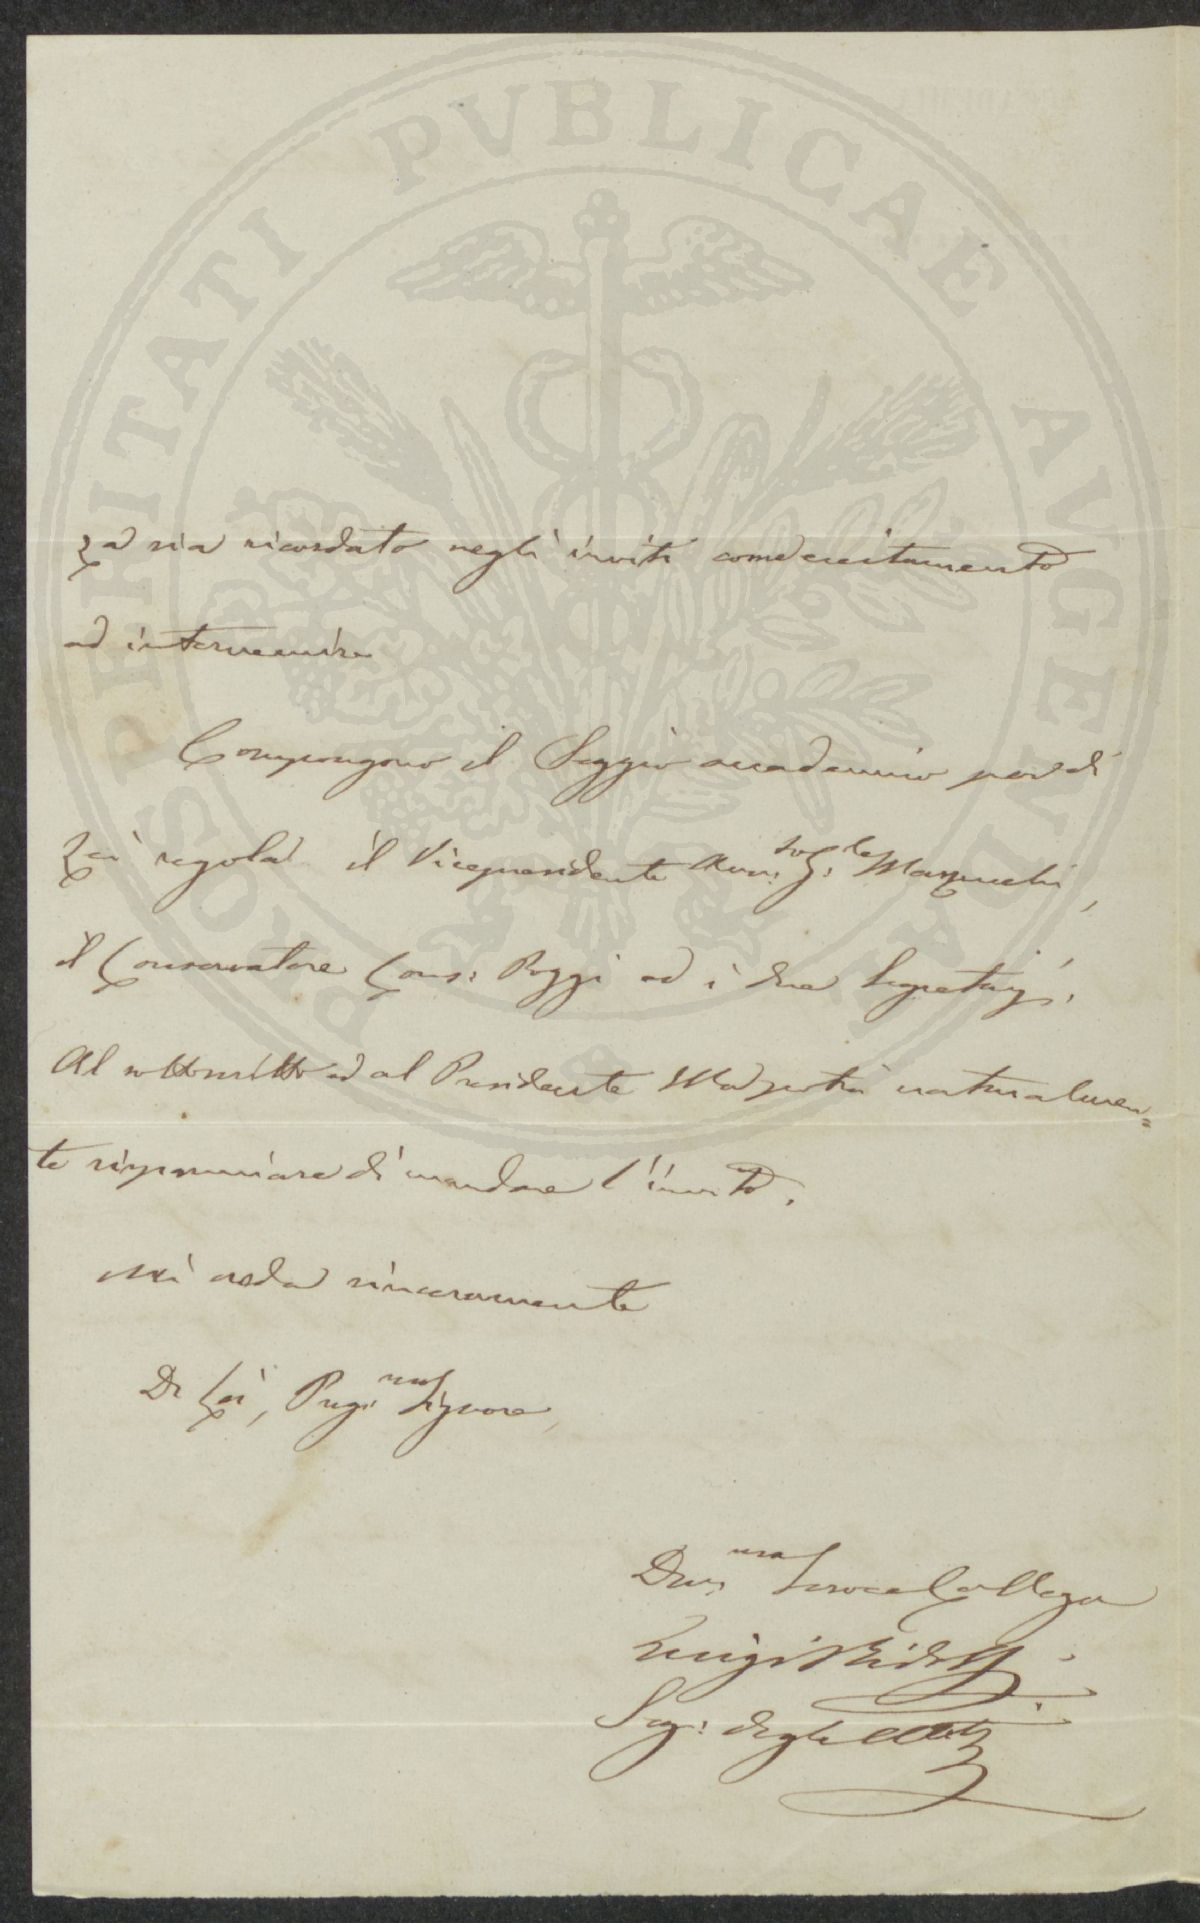 PROSPERITATI PVBLICAE AVGENDAE
za sia ricordato negli inviti come eccitamento
ad intervenire
Compongono il Seggio accademico per di
Lei regola il Vicepresidente Avv. Marzucchi,
il Conservatore Cons: Poggi ed i due Segretarj.
Al sottoscritto ed al Presidente naturalmen=
te risparmiare di mandare l'invito.
Mi creda sinceramente
Di Lei, Preg: mo Signore,
Dev: mo Servo e Collega
Luigi Ridolfi
Seg: degli Atti